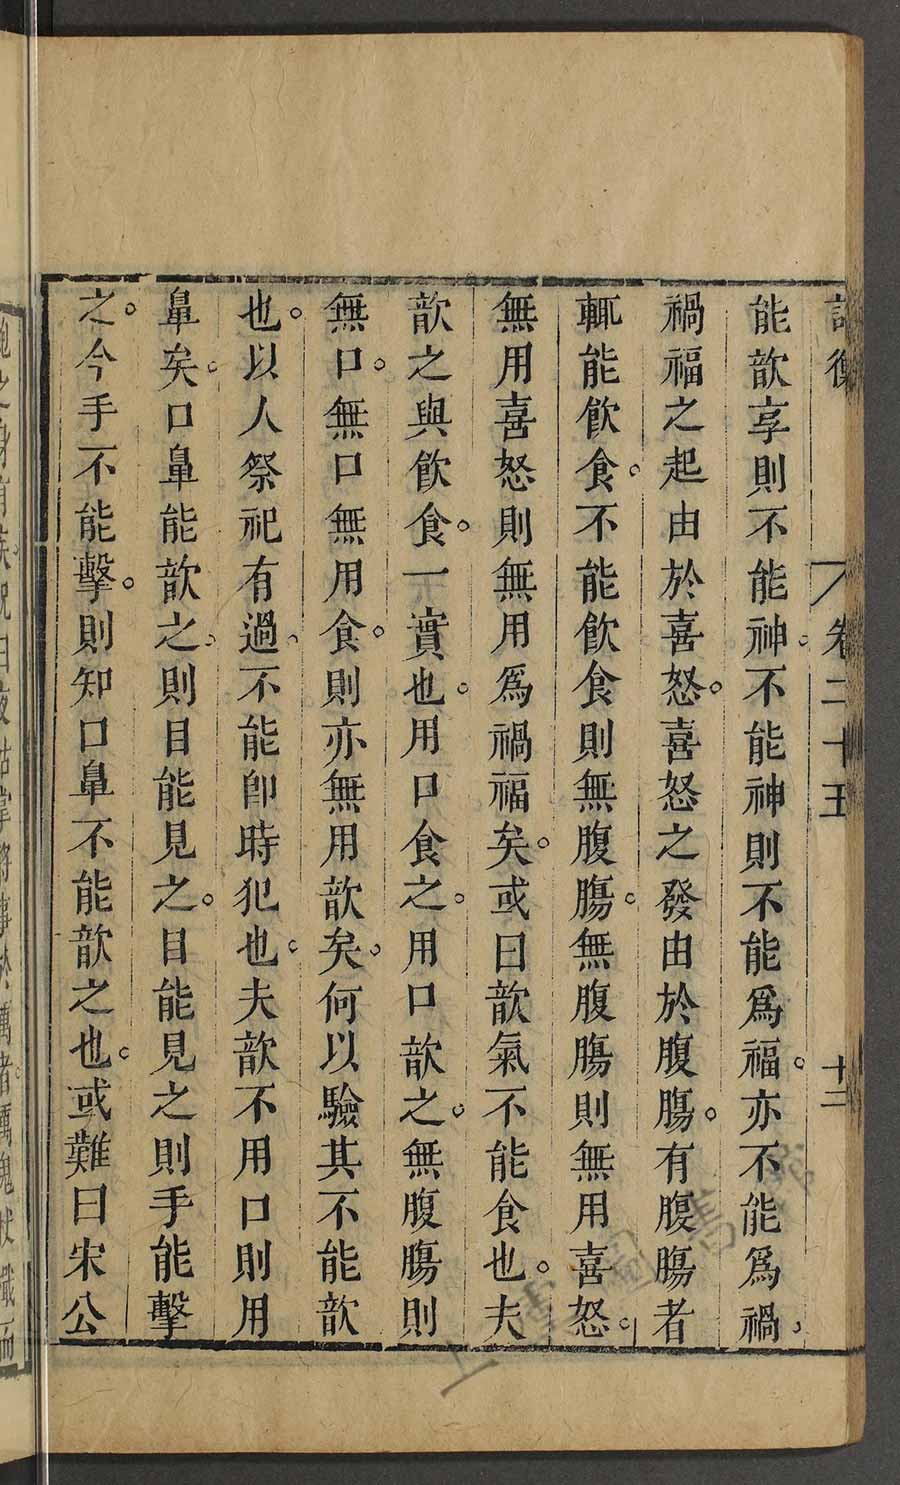 論衡 卷二十五 十二
能歆享則不能神。不能神則不能爲福。亦不能爲禍。
禍福之起由於喜怒。喜怒之發由於腹腸。有腹腸者
輒能飲食。不能飲食則無腹腸。無腹腸則無用喜怒。
無用喜怒則無用爲禍福矣。或曰歆氣不能食也。夫
歆之與飲食。一實也。用口食之。用口歆之。無腹腸則
無口。無口無用食。則亦無用歆矣。何以驗其不能歆
也。以人祭祀有過。不能卽時犯也。夫歆不用口則用
鼻矣。口鼻能歆之。則目能見之。目能見之則手能擊
之。今手不能擊。則知口鼻不能歆之也。或難曰宋公